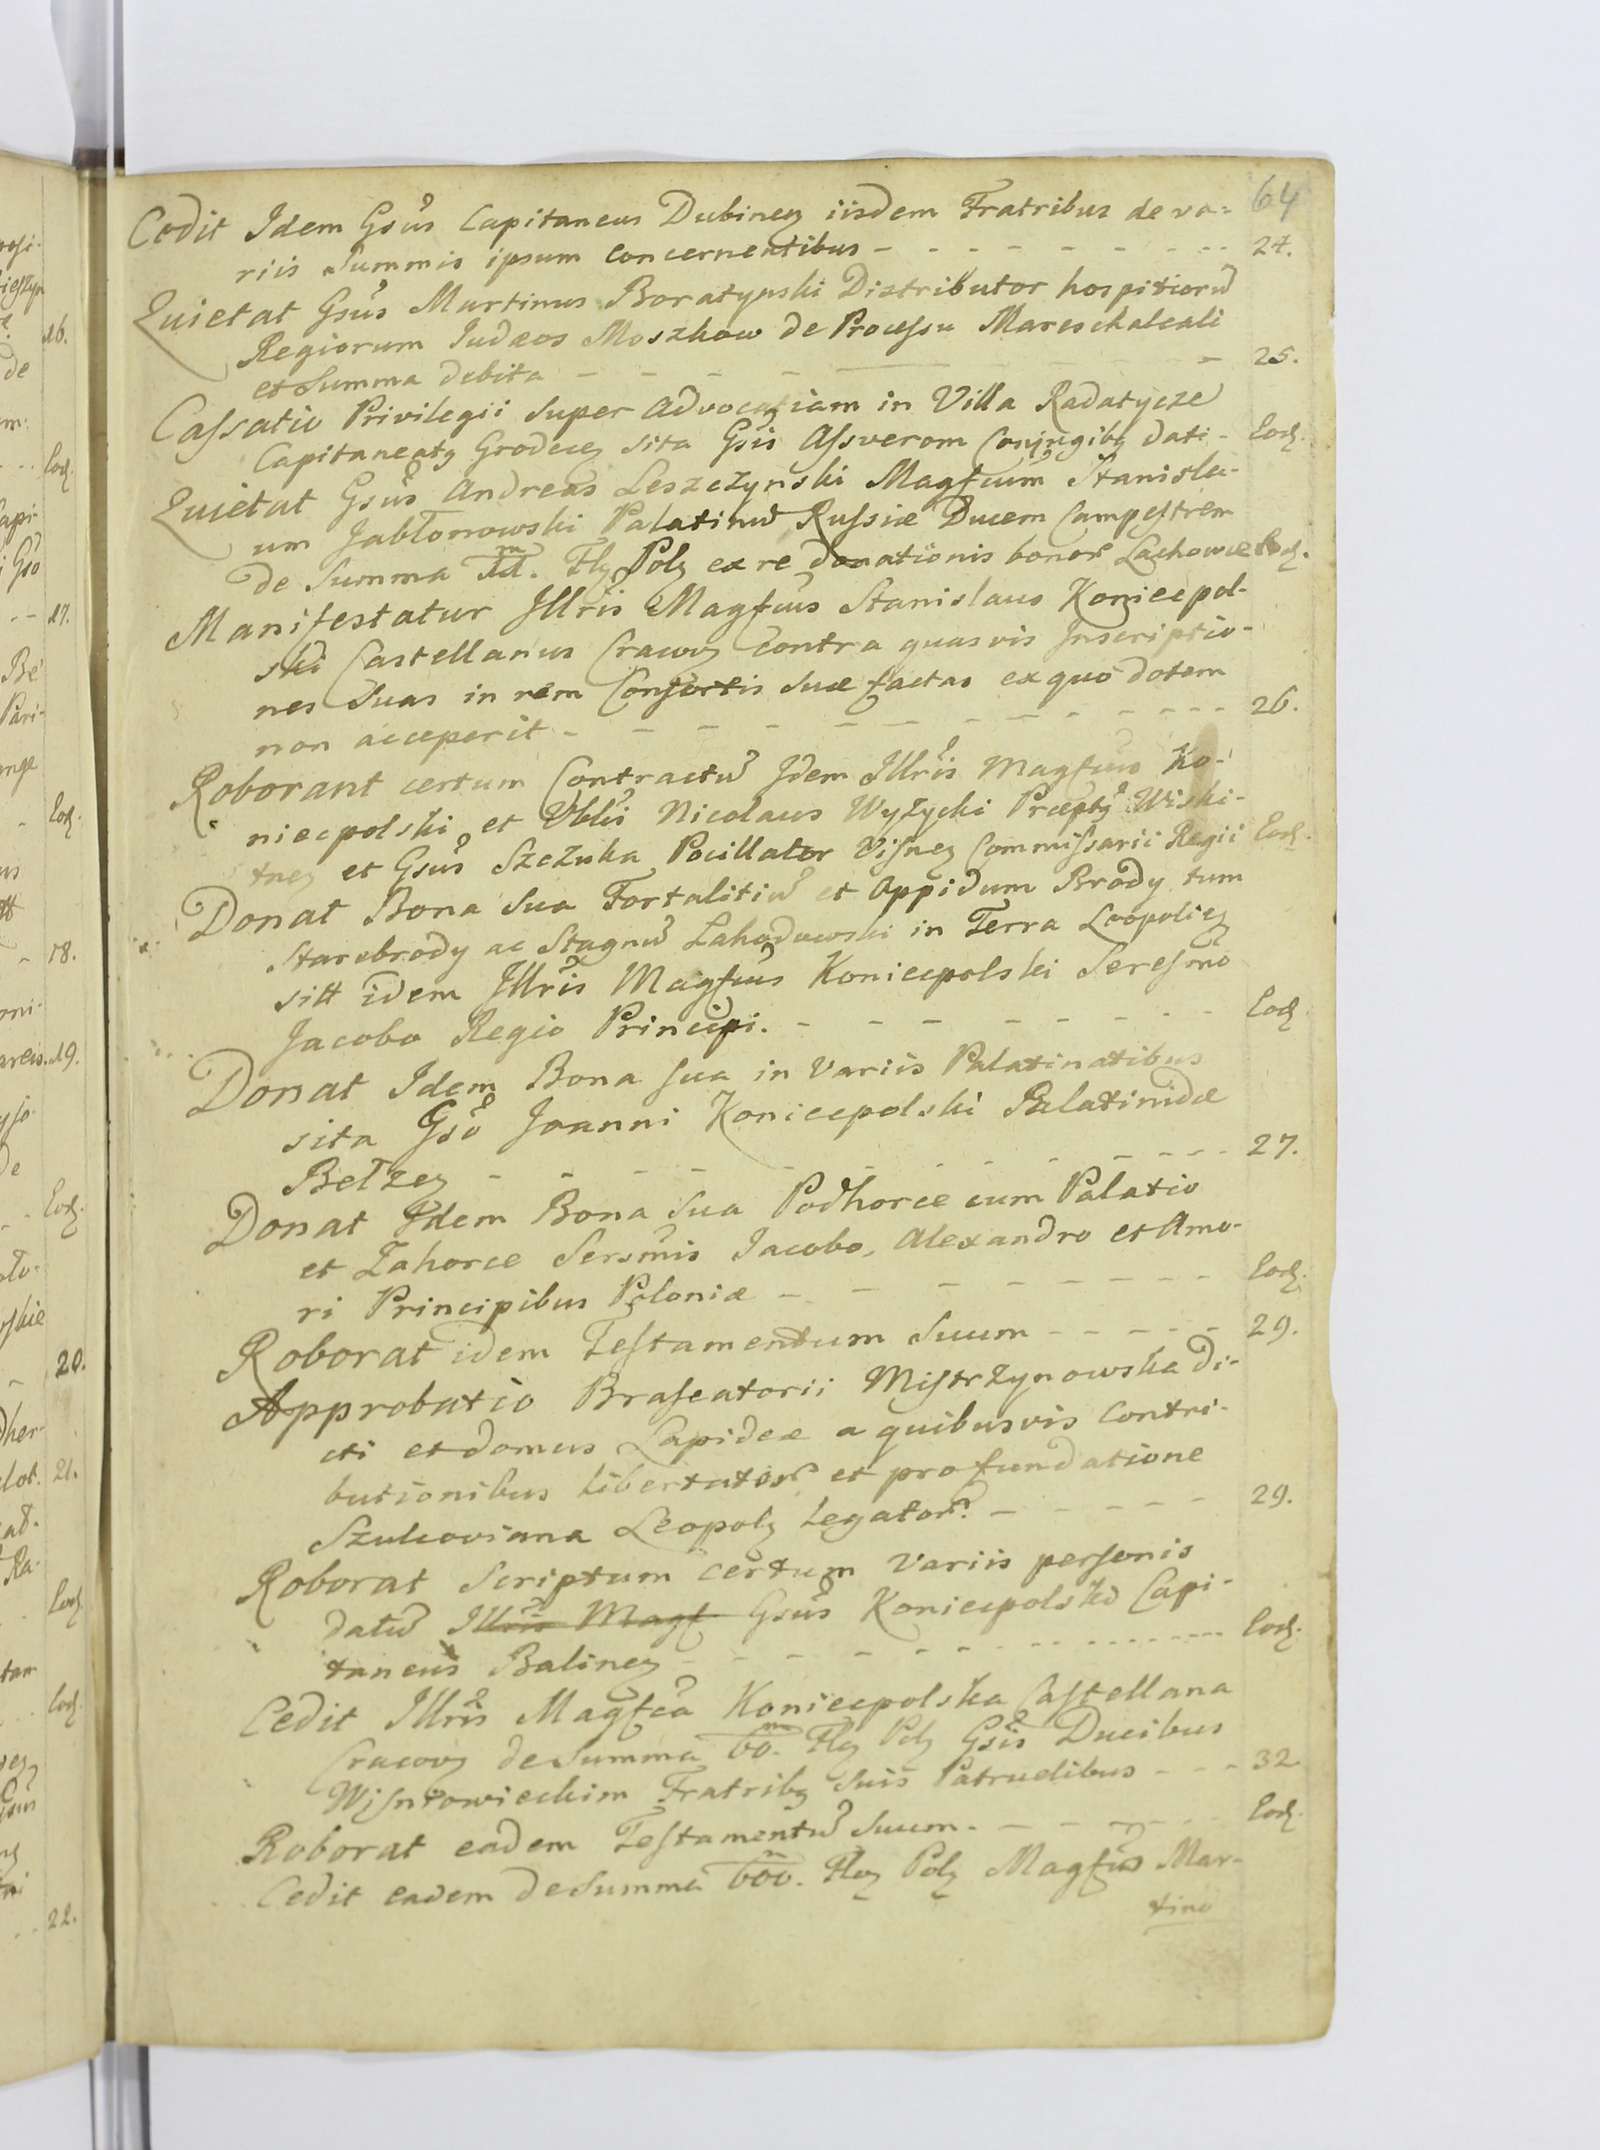 64
Cedit Idem Gsus Capitaneus Dubineñ iisdem Fratribus de va=
riis Summis ipsum concernentibus - - - - - - - - - 24.
Quietat Gsus Martinus Boratynski Distributor hospitiorū
Regiorum Iudæos Moszkow de Processu Mareschalcali
et Summa debita - - - - - - - 25.
Cassatio Privilegii super Advocatiam in Villa Radatycze
Capitaneatq Grodeceñ sita Gsis Assverom Conjugibq dati - Eod.
Quietat Gsus Andreas Leszczynski Magfcum Stanisla-
um Jabłonowski Palatinū Russiæ Ducem Campestrem
de Summa Fly Poly ex re donationis bonor Lachowce Eod.
Manifestatur Illris Magfcus Stanislaus Koniecpol-
ski Castellanus Cracovy contra quasvis Inscriptio-
nes Suas in rem Consortis suæ factas ex quo dotem
non acceperit - - - - - - - - - - - 26.
Roborant certum Contractū Idem Illris Magfcus Ko-
niecpolski et Nicolaus Wyżycki Præptq Wiski-
tney et Gsus Szczuka Pocillator Visney Commissarii Regii Eod.
Donat Bona Sua Fortalitiū et Oppidum Brody tum
Starebrody ac Stagnū Lahodowski in Terra Leopolieñ
sitt idem Illris Magfcus Koniecpolski Seresmo
Jacobo Regio Principi. - - - - - - - - - Eod.
Donat Idem Bona sua in Variis Palatinatibus
sita Gso Joanni Koniecpolski Palatinidæ
Bełzey - - - - - - - - - - - 27.
Donat Idem Bona Sua Podhorce cum Palatio
et Zahorce Sersmis Iacobo, Alexandro et Amo-
ri Principibus Poloniæ - - - - - - - - Eod.
Roborat idem Testamentum Suum - - - - - 29.
Approbatio Braseatorii Mistrzynowska di-
cti et domus Lapideæ a quibusvis Contri-
butionibus libertator et pro fundatione
Szulcoviana Leopoly legator. - - - - - 29.
Roborat Scriptum certum Variis personis
datū Illris Magf Gsus Koniecpolski Capi-
taneus Balineñ - - - - - - - - - - Eod.
Cedit Illris Magfca Koniecpolska Castellana
Cracovy de Summa 60. Fly Poly Gsis Ducibus
Wisniowieckim Fratribq suis Patruelibus - - - 32
Roborat eadem Testamentū Suum. - - - - - Eod.
Cedit eadem de Summa 600. Fly Poly Magfcus Mar-
tino